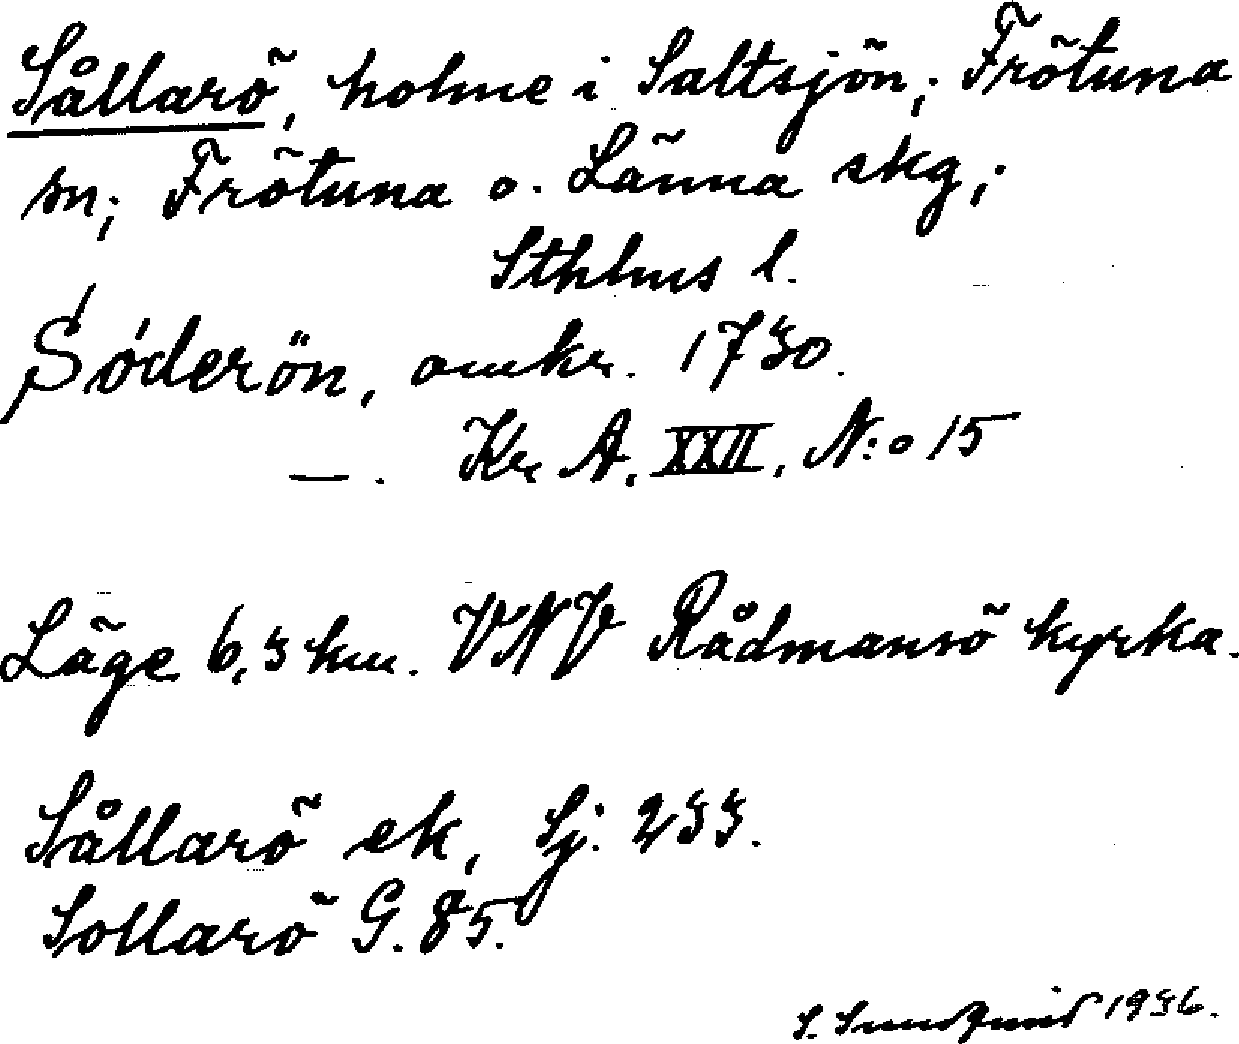 Sållarö, holme i Saltsjön; Frötuna
sn; Frötuna o. Länna skg;
Sthlms l.
Söderön, omkr. 1730.
—. Kr A, XXII, N:o 15
Läge 6,3 km. VNV Rådmansö kyrka.
Sållarö ek, Sj. 233.
Sollarö G. 85.
S. Sundquist 1936.